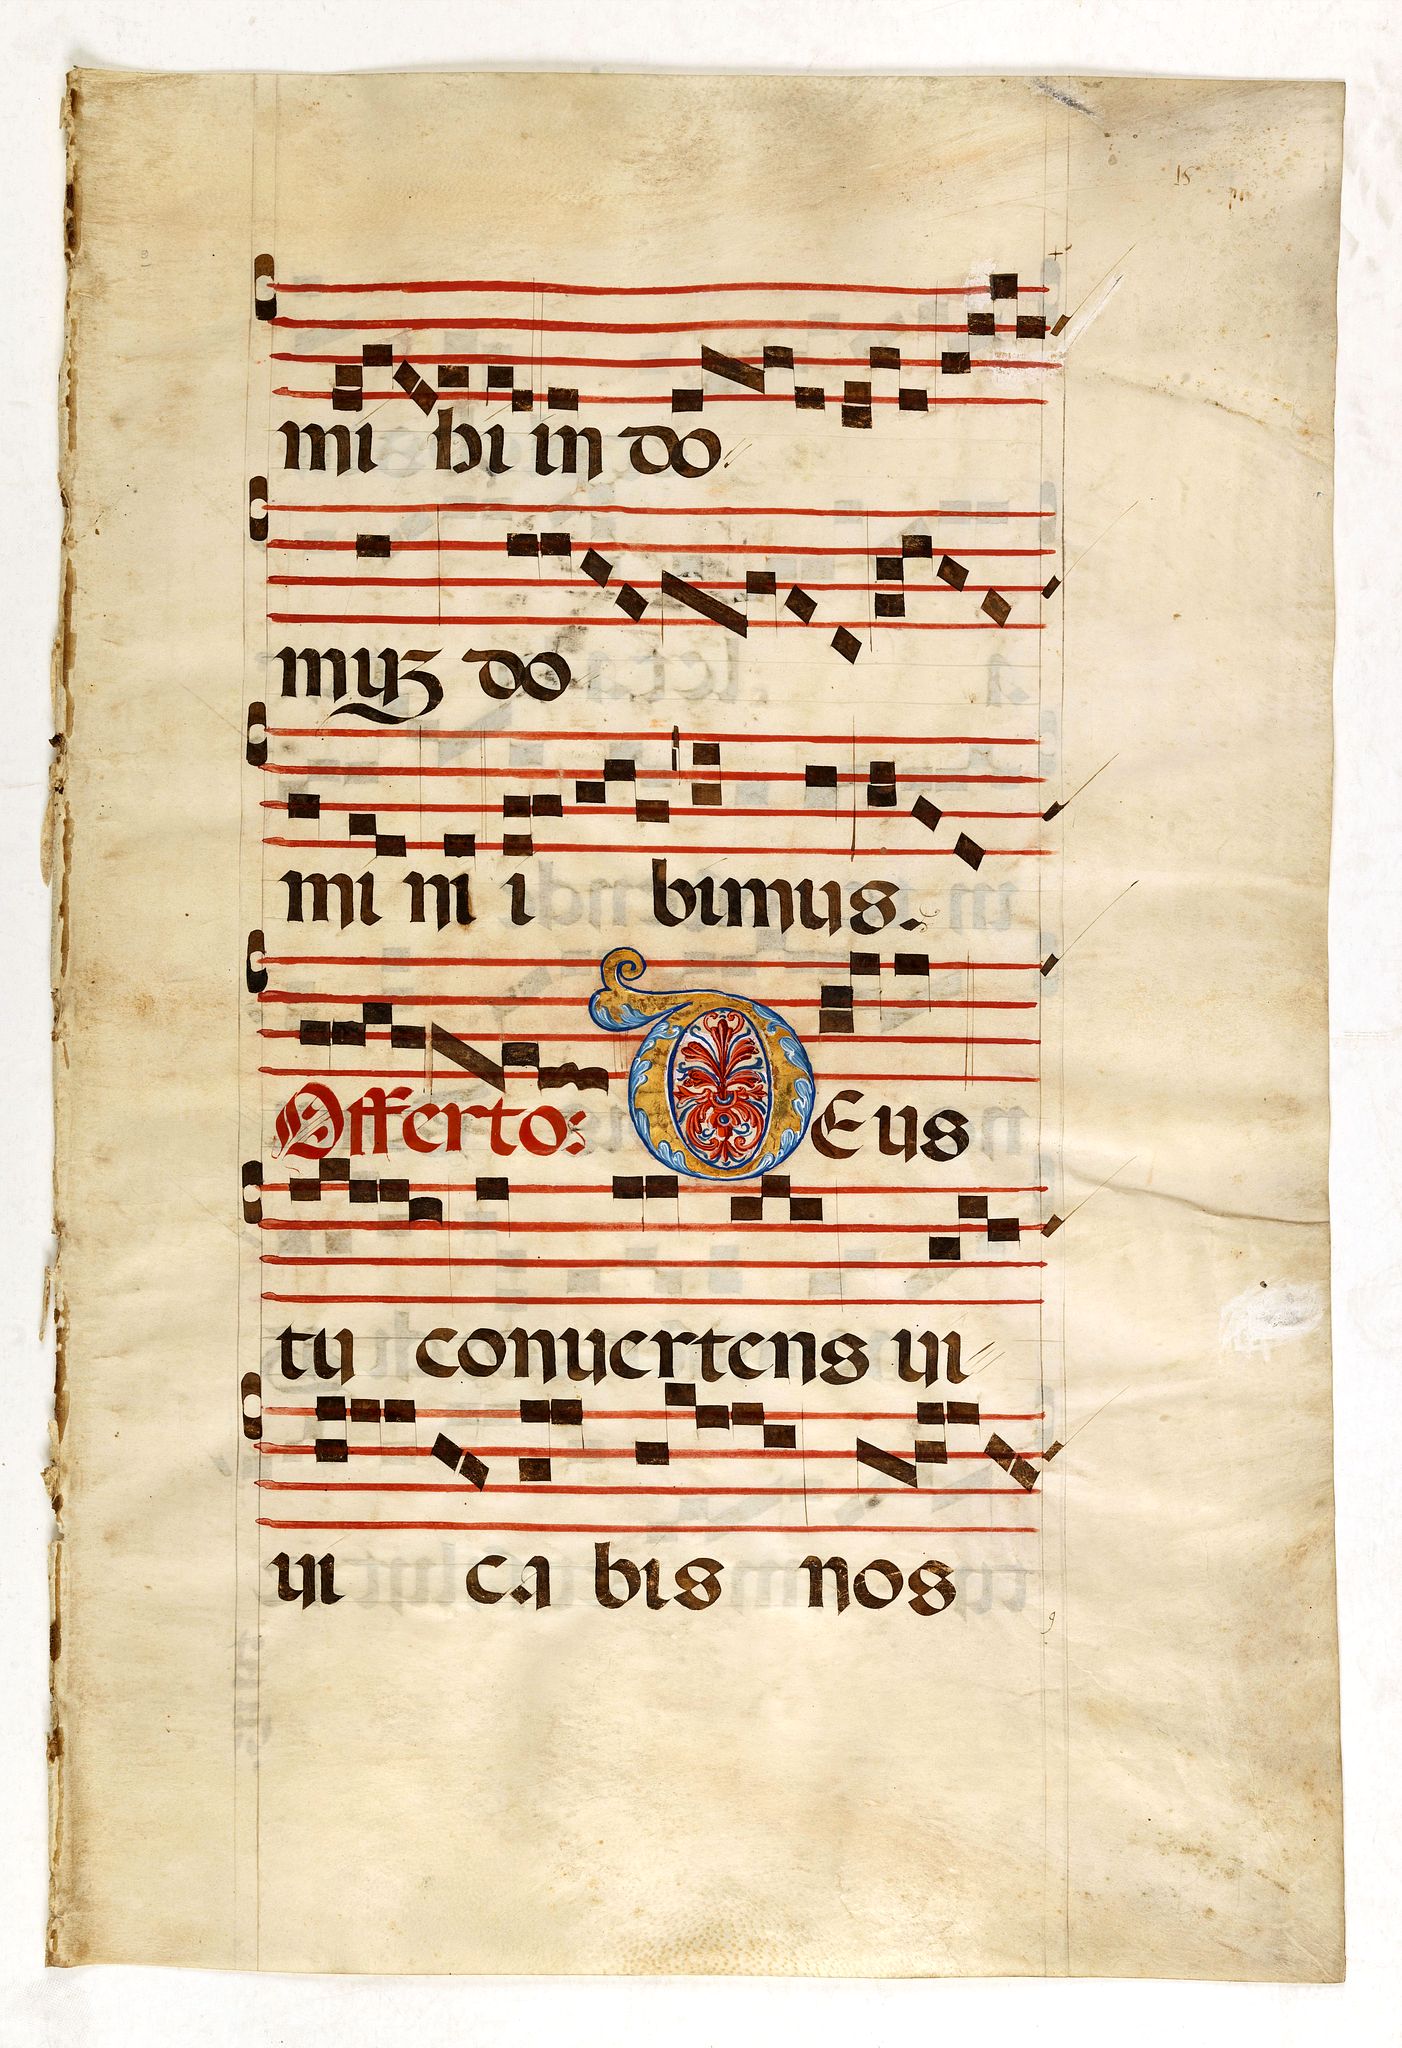 15
mi hi in do
muz do
mi ni i bimus.
Offerto: DEus
tu conuertens ui
ui ca bis nos